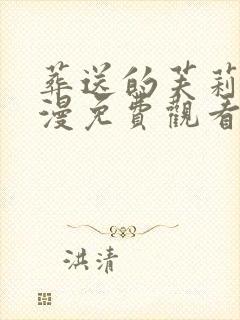 葬送的芙莉
漫免費觀看
洪清